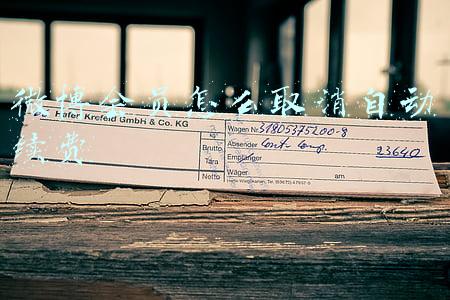 微博会员怎么取消自动
续费
Hafen Krefeld GmbH & Co. KG
kg
Wagen Nr. 31805375200-8
Brutto
Absender
23640
Tara
Empfänger
Netto
Wäger
am